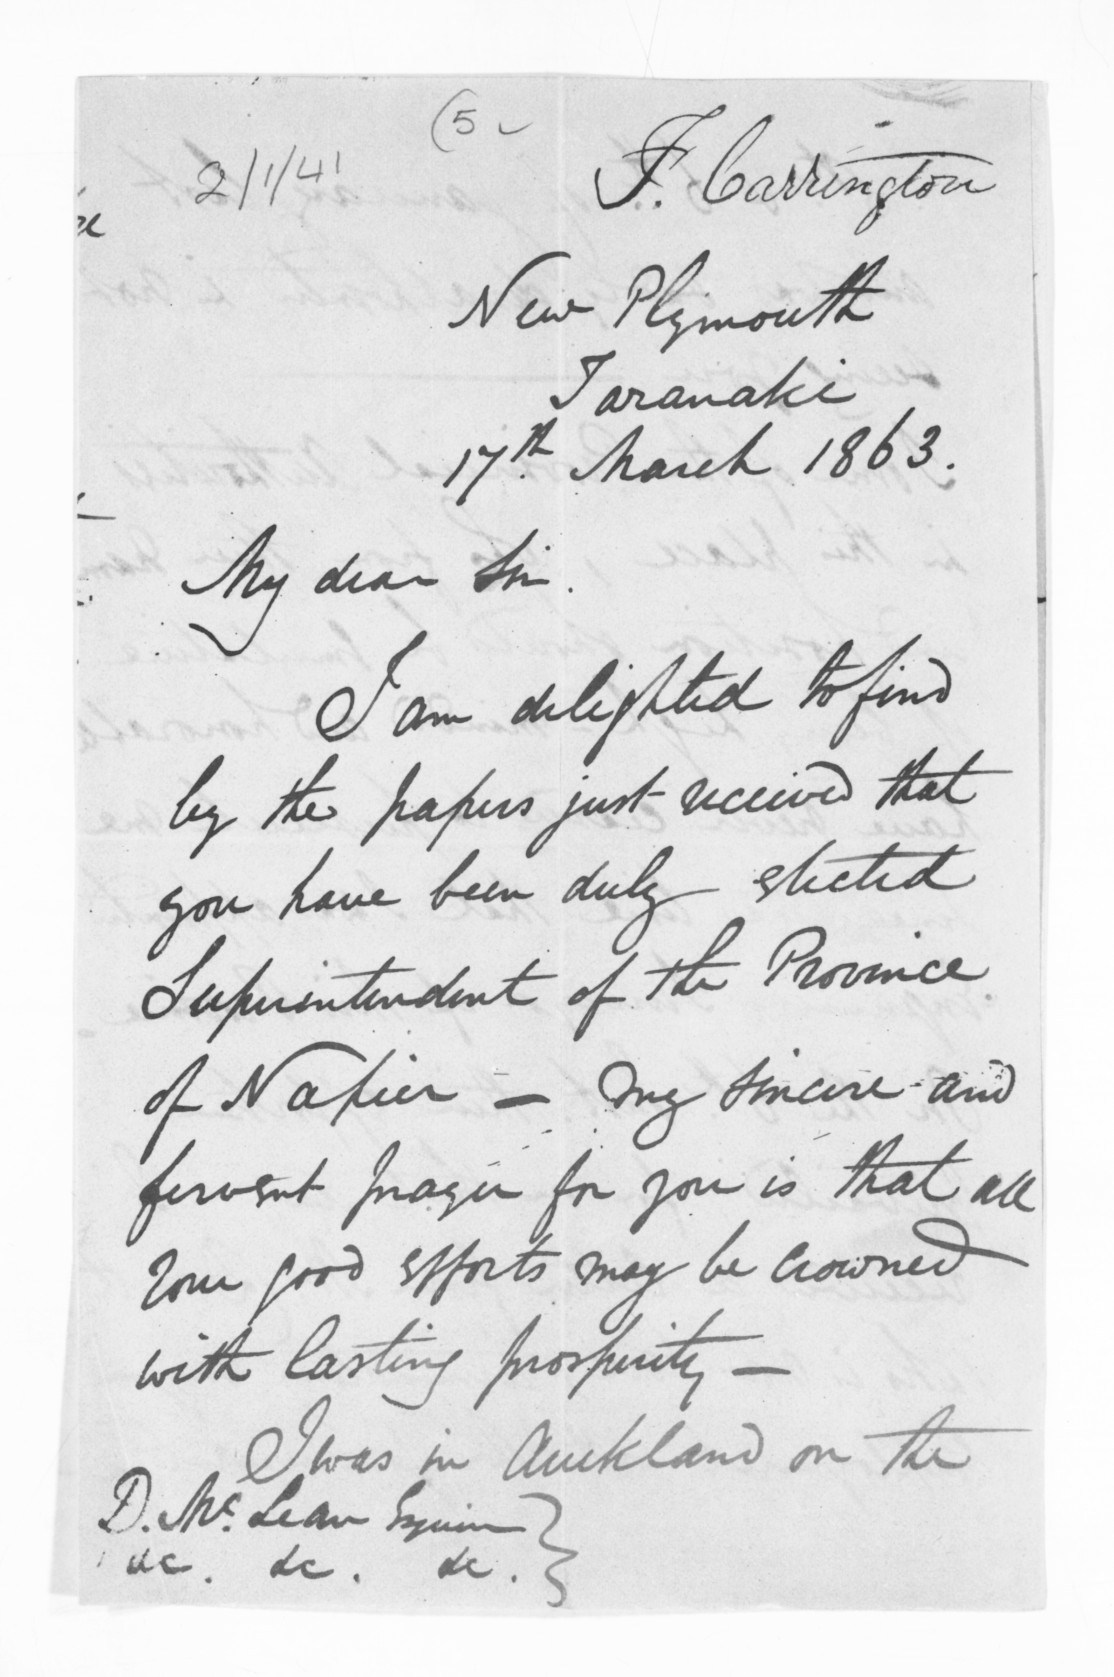 (5
2/1/41
F. Carrington
New Plymouth
Taranaki
17th March 1863.
My dear Sir.
I am delighted to find
by the papers just received that
you have been duly elected
Superintendent of the Province
of Napier — my sincere and
fervent prayer for you is that all
your good efforts may be crowned
with lasting prosperity —
I was in Auckland on the
D. McLean Esquire
&c. &c. &c.